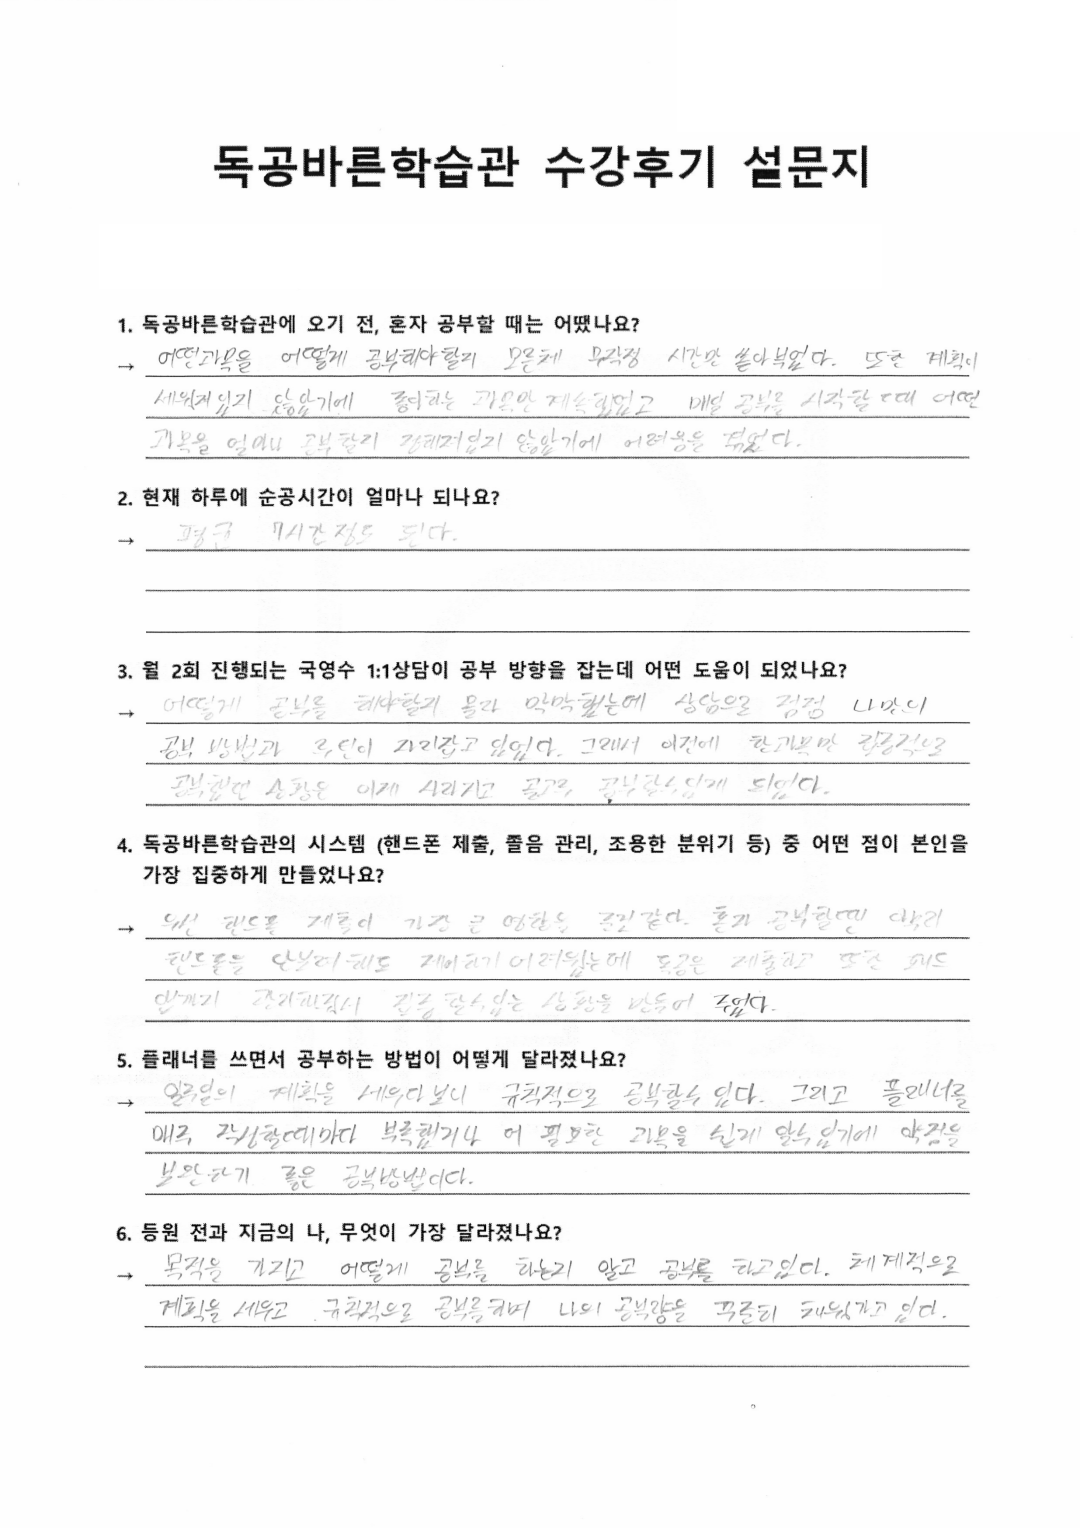 독공바른학습관 수강후기 설문지
1. 독공바른학습관에 오기 전, 혼자 공부할 때는 어땠나요?
→ 어떤과목을 어떻게 공부해야할지 모른체 무작정 시간만 쏟아부었다. 또한 계획이
세워져있지 않았기에 좋아하는 과목만 계속했었고 매일 공부를 시작할 때 어떤
과목을 얼마나 공부할지 정해져있지 않았기에 어려움을 겪었다.
2. 현재 하루에 순공시간이 얼마나 되나요?
→ 평균 7시간정도 된다.
3. 월 2회 진행되는 국영수 1:1상담이 공부 방향을 잡는데 어떤 도움이 되었나요?
→ 어떻게 공부를 해야할지 몰라 막막했는데 상담으로 점점 나만의
공부 방법과 루틴이 자리잡고 있었다. 그래서 이전에 한과목만 집중적으로
공부했던 상황은 이제 사라지고 골고루 공부할수있게 되었다.
4. 독공바른학습관의 시스템 (핸드폰 제출, 졸음 관리, 조용한 분위기 등) 중 어떤 점이 본인을
가장 집중하게 만들었나요?
→ 우선 핸드폰 제출이 가장 큰 영향을 준것같다. 혼자 공부할땐 아무리
핸드폰을 안보려해도 제어하기 어려웠는데 독공은 제출하고 또한 패드
관리 집중할수있는 상황을 만들어 주었다.
5. 플래너를 쓰면서 공부하는 방법이 어떻게 달라졌나요?
→ 일주일의 계획을 세우다보니 규칙적으로 공부할수 있다. 그리고 플래너를
매주 작성할때마다 부족했거나 더 필요한 과목을 쉽게 알수있기에 약점을
보완하기 좋은 공부방법이다.
6. 등원 전과 지금의 나, 무엇이 가장 달라졌나요?
→ 목적을 가지고 어떻게 공부를 하는지 알고 공부를 하고있다. 체계적으로
계획을 세우고 규칙적으로 공부를하며 나의 공부량을 꾸준히 채워가고 있다.